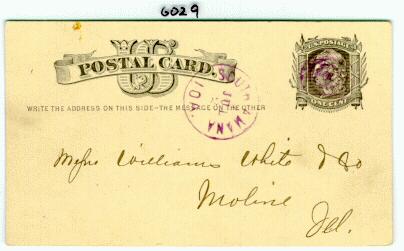 6029
US
POSTAL CARD.
SOUTH AMANA
JUL
IOA.
U.S. POSTAGE
ONE CENT
WRITE THE ADDRESS ON THIS SIDE-THE MESSAGE ON THE OTHER
Messrs Williams White & Co
Moline
Ill.